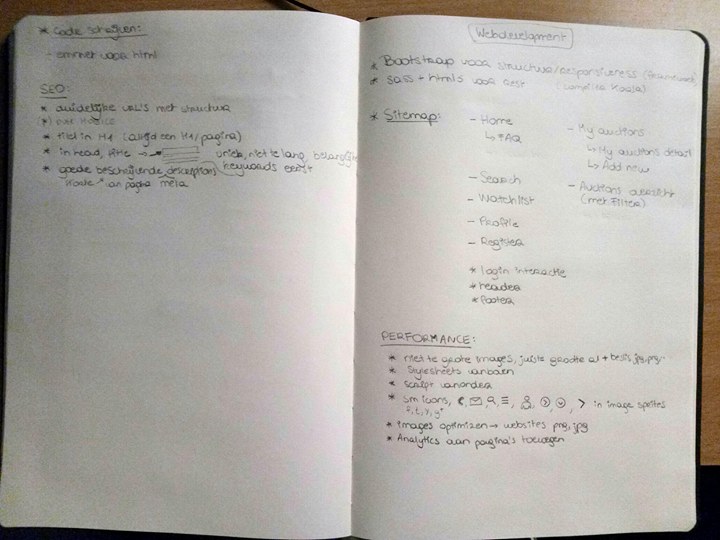 * Code schrijven:
- emmet voor html
SEO:
* duidelijke URL's met structuur
* titel in H1 (altijd een H1/pagina)
* in head, title → uniek, niet te lang, belangrijkste
keywords eerst
* goede beschrijvende descriptions
aan pagina meta
Webdevelopment
* Bootstrap voor structuur/responsiveness (framework,
* sass + html5 voor rest complile Koala)
* Sitemap:
- Home
↳ FAQ
- Search
- Watchlist
- Profile
- Register
* login interactie
* header
* footer
- My auctions
↳ My auctions detail
↳ Add new
- Auctions overzicht
(met Filter)
PERFORMANCE:
* niet te grote images, juiste grootte al + best jpg,png
* Stylesheets vanboven
* script vanonder
* sm icons, in image sprites
f, t, y, g+
* images optimizen → websites png, jpg
* Analytics aan pagina's toevoegen